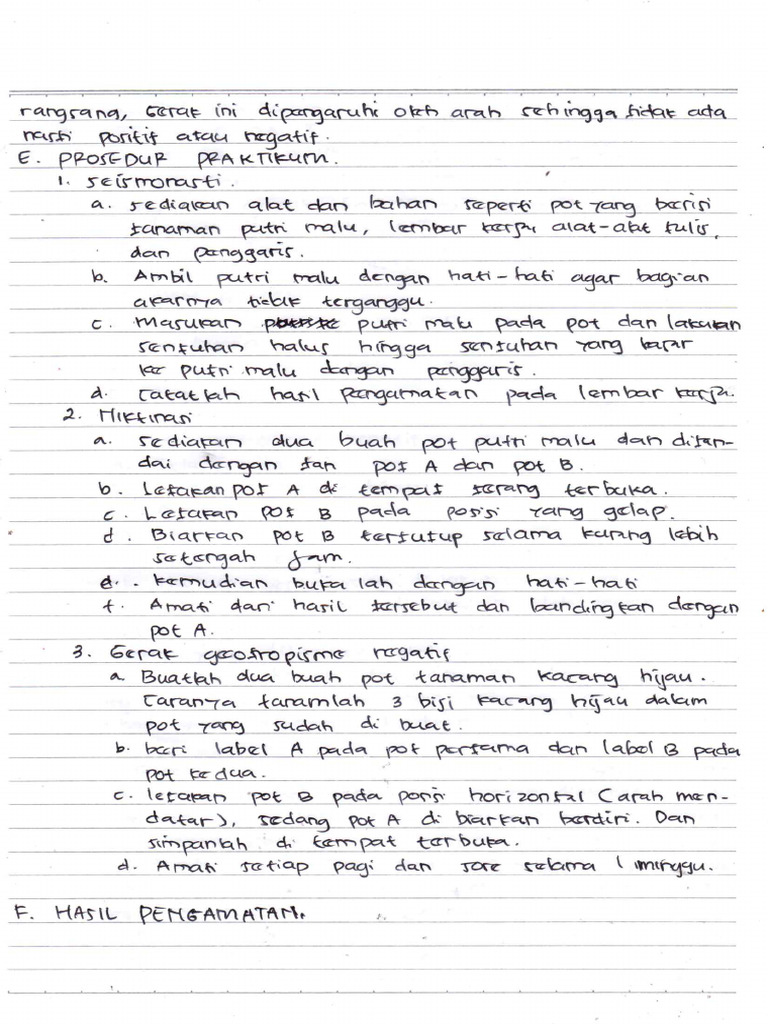 rangsang, Gerak ini dipengaruhi oleh arah sehingga tidak ada
nasti positif atau negatif.
E. PROSEDUR PRAKTIKUM.
1. seismonasti.
a. sediakan alat dan bahan seperti pot yang berisi
tanaman putri malu, lembar kerja alat-alat tulis,
dan penggaris.
b. Ambil putri malu dengan hati-hati agar bagian
akarnya tidak terganggu.
c. Masukan putri malu pada pot dan lakukan
sentuhan halus hingga sentuhan yang kasar
ke putri malu dengan penggaris.
d. Catatlah hasil pengamatan pada lembar kerja.
2. Niktinasi
a. sediakan dua buah pot putri malu dan ditan-
dai dengan tan pot A dan pot B.
b. Letakan pot A di tempat terang terbuka.
c. Letakan pot B pada posisi yang gelap.
d. Biarkan pot B tertutup selama kurang lebih
setengah jam.
e. kemudian buka lah dengan hati-hati
f. Amati dari hasil tersebut dan bandingkan dengan
pot A.
3. Gerak geotropisme negatif
a. Buatlah dua buah pot tanaman kacang hijau.
Caranya tanamlah 3 biji kacang hijau dalam
pot yang sudah di buat.
b. beri label A pada pot pertama dan label B pada
pot kedua.
c. letakan pot B pada posisi horizontal (arah men-
datar), sedang pot A di biarkan berdiri. Dan
simpanlah di tempat terbuka.
d. Amati setiap pagi dan sore selama 1 minggu.
F. HASIL PENGAMATAN.